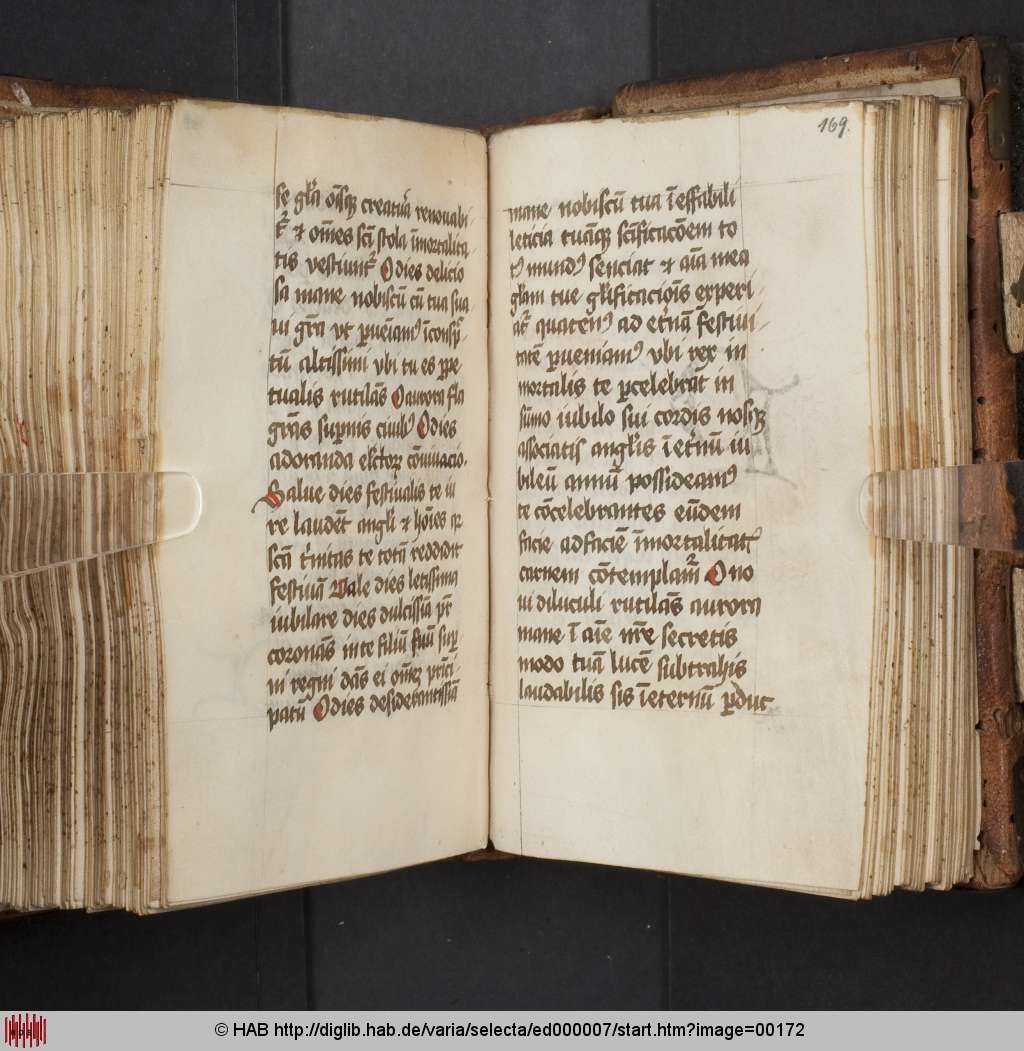 se gl̄a om̄sq; creatūa renouabi
t᷑ ⁊ om̄es sc̄i stola ī mortalita
tis vestiunt᷑ O dies delicio
sa mane nobiscū cū tua sua
ui gr̄a vt ꝑueīamꝰ ī consp̄
tū altissimi vbi tu es ꝑpe
tualis rutilās O aurora fla
grās suꝑnis ciuibꝰ O dies
adoranda elc̄torꝝ cōuiuacio.
Salue dies festiualis te iu
re laudēt angl̄i ⁊ hōies qr
sc̄a t̓nitas te totā reddidit
festiuā Vale dies letissima
iubilare dies dulcissīa pr̄
coronās in te filiū suū suꝑ
ni regni dās ei om̄eꝫ prīci
patū O dies desiderantissīa
169.
mane nobiscū tua ī effabili
leticia tuāq; sc̄ificacōem to
tꝰ mundꝰ senciat ⁊ aīa mea
gl̄am tue gl̄ificacioīs experi
at᷑ quatenꝰ ad et̓nā festiui
tatē ꝑueniamꝰ vbi rex in
mortalis te ꝑcelebrat in
sūmo iubilo sui cordis nosq;
associatis angl̄is ī et̓nū iu
bileū annū possideamꝰ
te cōcelebrantes eūdem
facie ad faciē īmortalitatꝭ
carnem cōtemplam᷑ O no
ui diluculi rutilās aurora
mane ī aīe mr̄e secretis
modo tuā lucē subtrahis
laudabilis sis ī eternū ꝑduc
© HAB http://diglib.hab.de/varia/selecta/ed000007/start.htm?image=00172